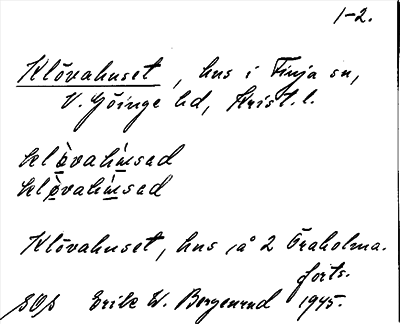 1-2.
Klövahuset, hus i Finja sn,
V. Göinge hd, Krist. l.
klövahusad
klövahusad
Klövahuset, hus på 2 Öraholma.
forts.
SOS Erik W. Bergenrud 1945.